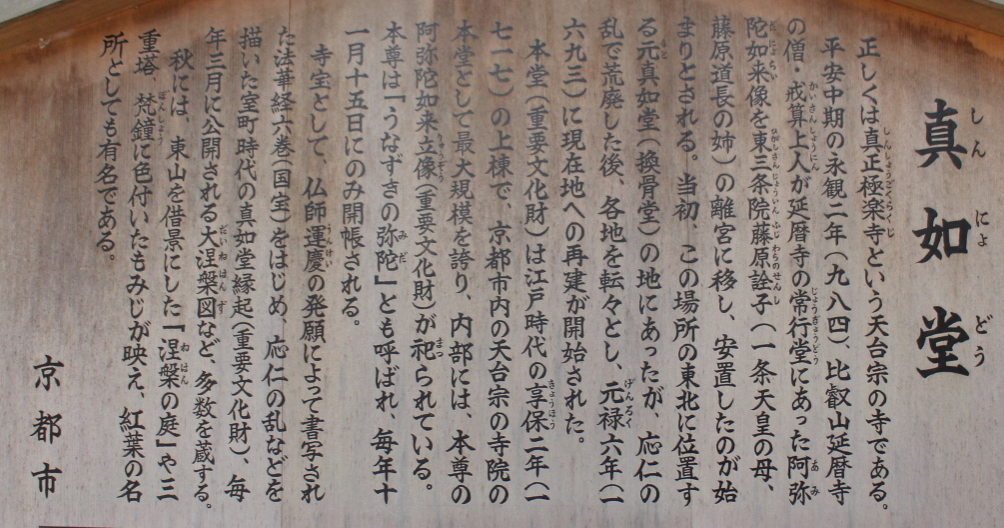 真如堂
正しくは真正極楽寺という天台宗の寺である。
平安中期の永観二年（九八四）、比叡山延暦寺
の僧・戒算上人が延暦寺の常行堂にあった阿弥
陀如来像を東三条院藤原詮子（一条天皇の母、
藤原道長の姉）の離宮に移し、安置したのが始
まりとされる。当初、この場所の東北に位置す
る元真如堂（換骨堂）の地にあったが、応仁の
乱で荒廃した後、各地を転々とし、元禄六年（一
六九三）に現在地への再建が開始された。
本堂（重要文化財）は江戸時代の享保二年（一
七一七）の上棟で、京都市内の天台宗の寺院の
本堂として最大規模を誇り、内部には、本尊の
阿弥陀如来立像（重要文化財）が祀られている。
本尊は「うなずきの弥陀」とも呼ばれ、毎年十
一月十五日にのみ開帳される。
寺宝として、仏師運慶の発願によって書写され
た法華経六巻（国宝）をはじめ、応仁の乱などを
描いた室町時代の真如堂縁起（重要文化財）、毎
年三月に公開される大涅槃図など、多数を蔵する。
秋には、東山を借景にした『涅槃の庭』や三
重塔、梵鐘に色付いたもみじが映え、紅葉の名
所としても有名である。
京都市